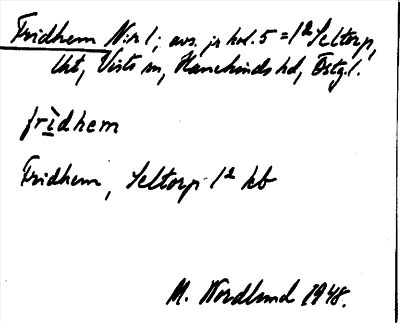 Fridhem N:r 1; avs. jr kol. 5 = 1² Seltorp,
Vist sn, Hanekinds hd, Östg. l.
frìdhem
Fridhem, Seltorp 1² hb
M. Nordlund 1948.